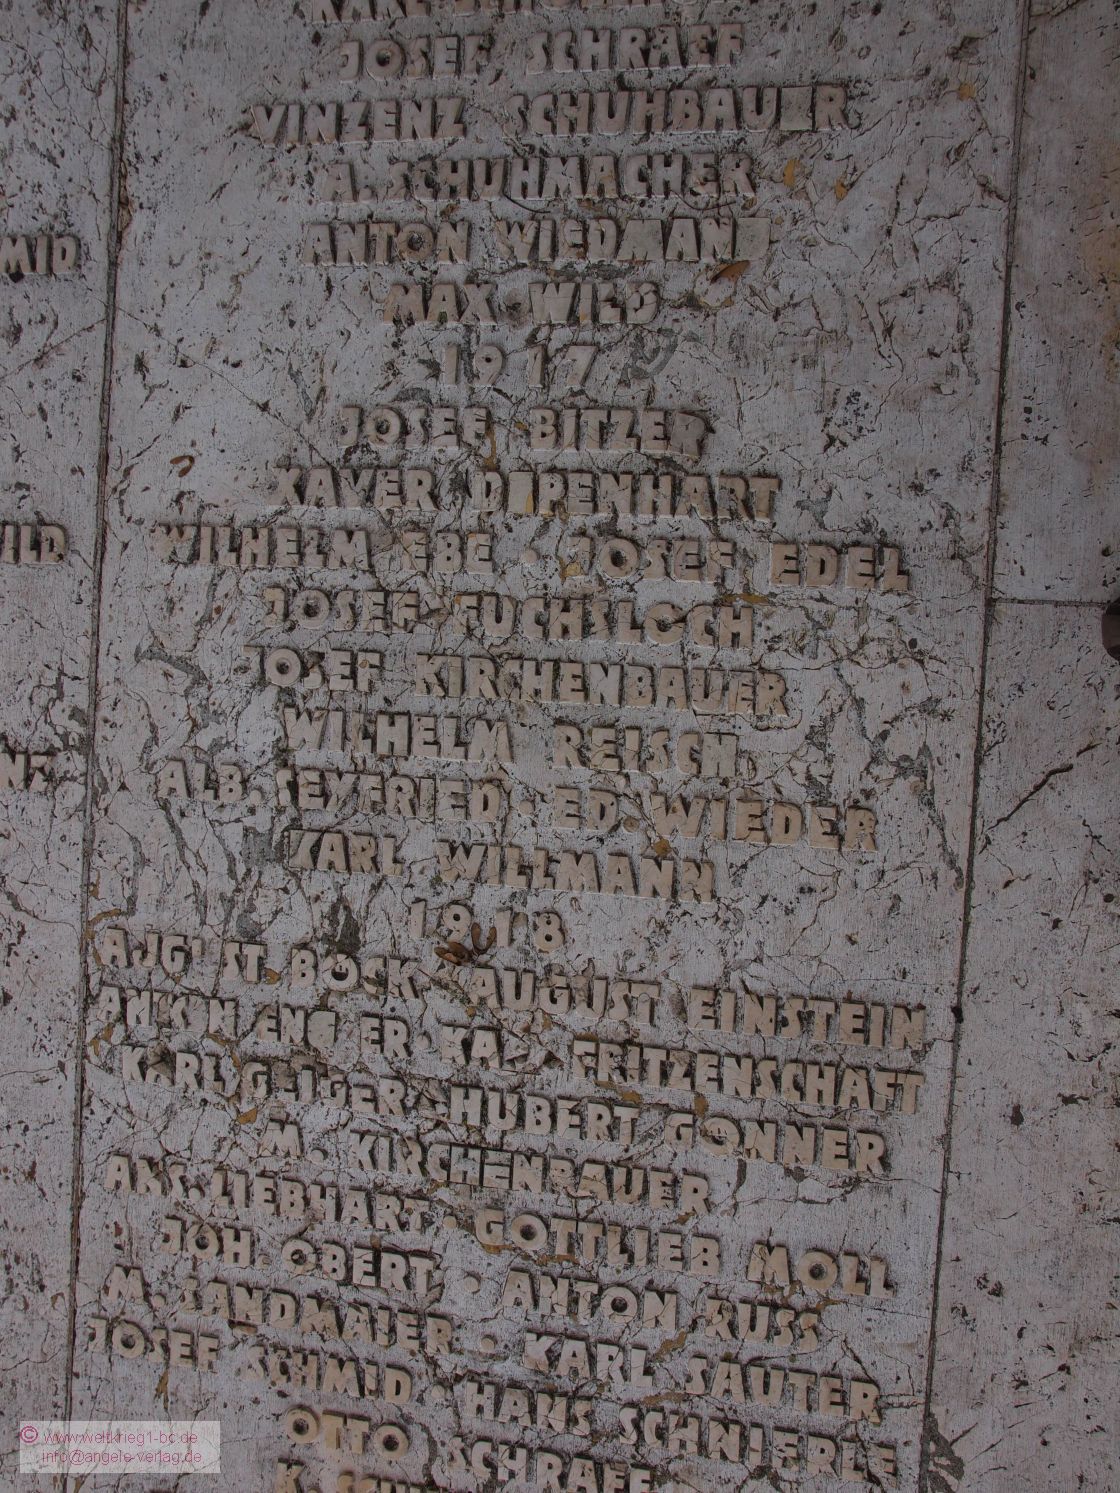 JOSEF SCHRAFF
VINZENZ SCHUHBAUER
A. SCHUHMACHER
ANTON WIEDMANN
MAX WILD
1917
JOSEF BITZER
XAVER DEPENHART
WILHELM EBE · JOSEF EDEL
JOSEF FUCHSLOCH
JOSEF KIRCHENBAUER
WILHELM REISCH
ALB. SEYFRIED · ED. WIEDER
KARL WILLMANN
1918
BOCK · AUGUST EINSTEIN
FRITZENSCHAFT
KARL GEIGER · HUBERT GONNER
M. KIRCHENBAUER
LIEBHART · GOTTLIEB MOLL
JOH. OBERT · ANTON RUSS
M. LANDMAIER · KARL SAUTER
JOSEF SCHMID · HANS SCHNIERLE
OTTO SCHRAFF
MID
ILD
© www.weltkrieg1-bc.de
info@angele-verlag.de